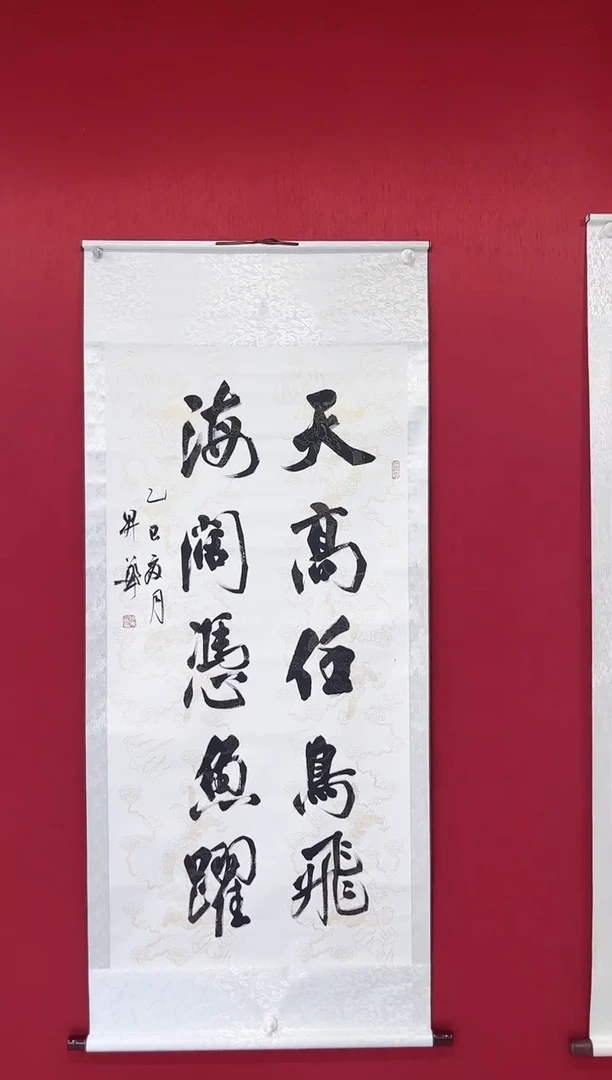 天高任鳥飛
海闊憑魚躍
乙巳夜月
昇華